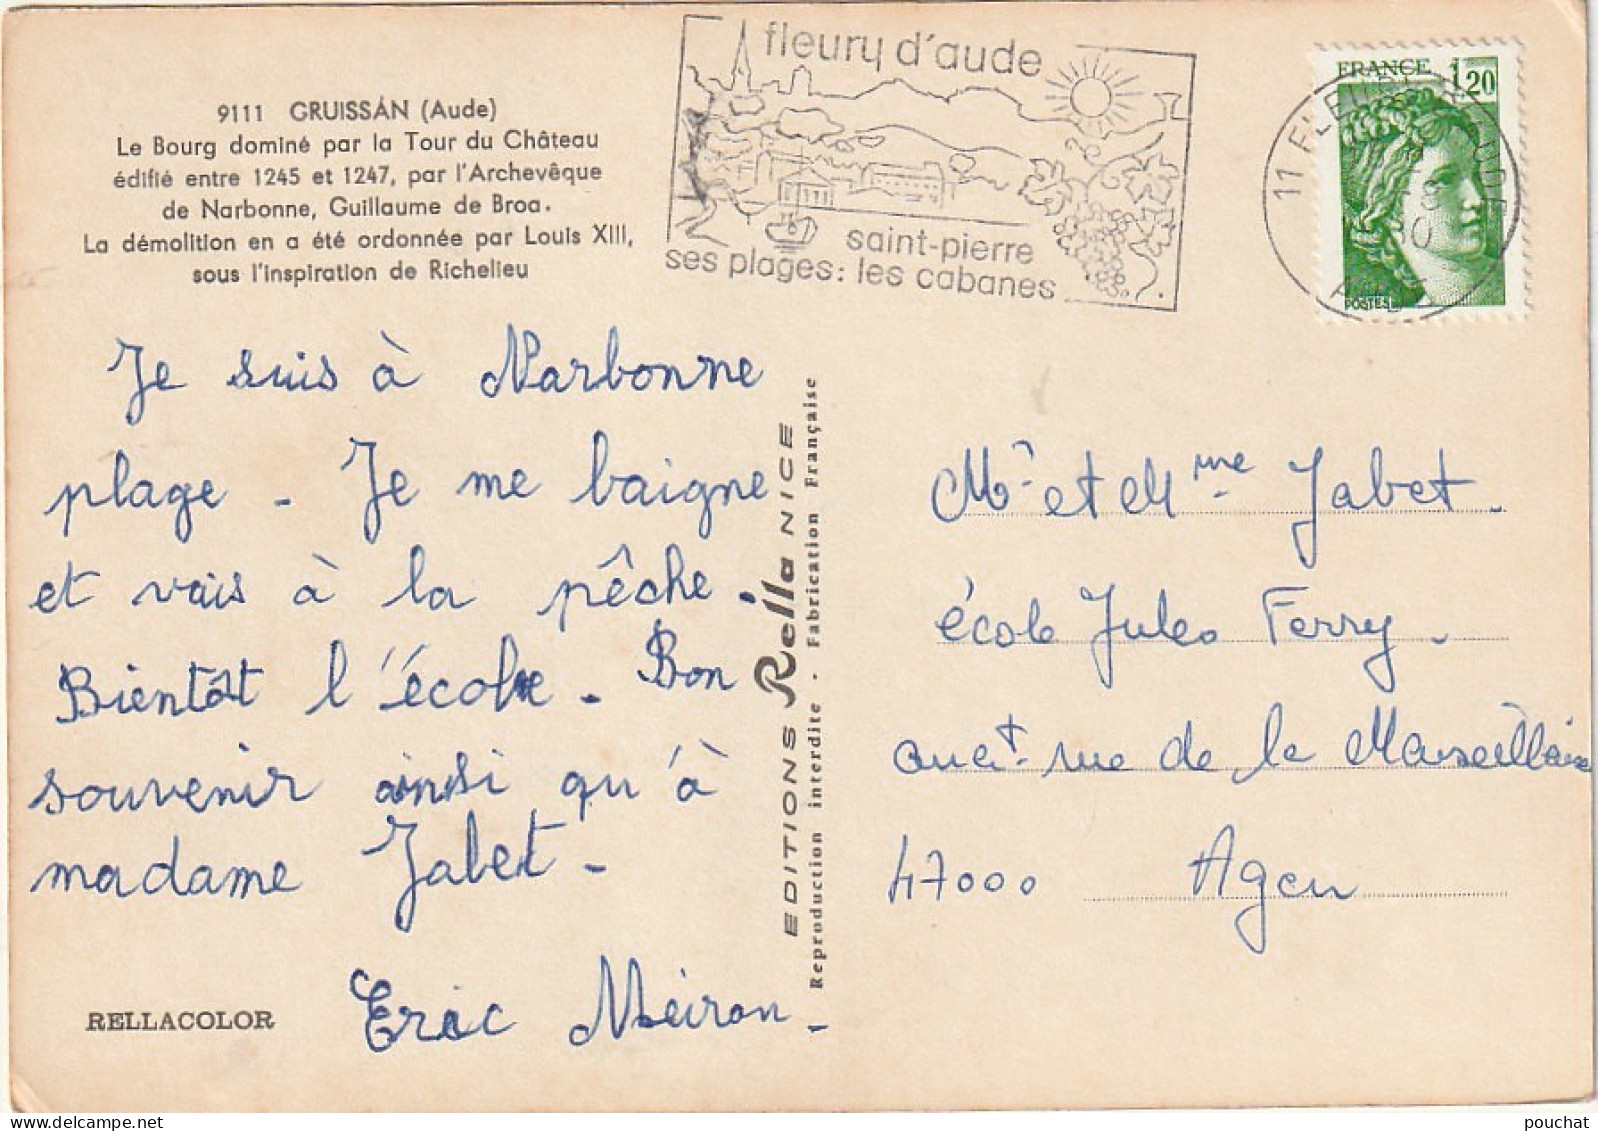 9111 GRUISSAN (Aude)
Le Bourg dominé par la Tour du Château
édifié entre 1245 et 1247, par l'Archevêque
de Narbonne, Guillaume de Broa.
La démolition en a été ordonnée par Louis XIII,
sous l'inspiration de Richelieu
fleury d'aude
saint-pierre
ses plages: les cabanes
FRANCE 1,20
POSTES
11 FLEURY D'AUDE
Je suis à Narbonne
plage - Je me baigne
et vais à la pêche.
Bientôt l'école. Bon
souvenir ainsi qu'à
madame Jabet -
Eric Meiron -
RELLACOLOR
EDITIONS Rella NICE
Reproduction interdite - Fabrication Française
Mr et Mme Jabet.
école Jules Ferry.
rue de la Marseillaise
47000 Agen
pouchat